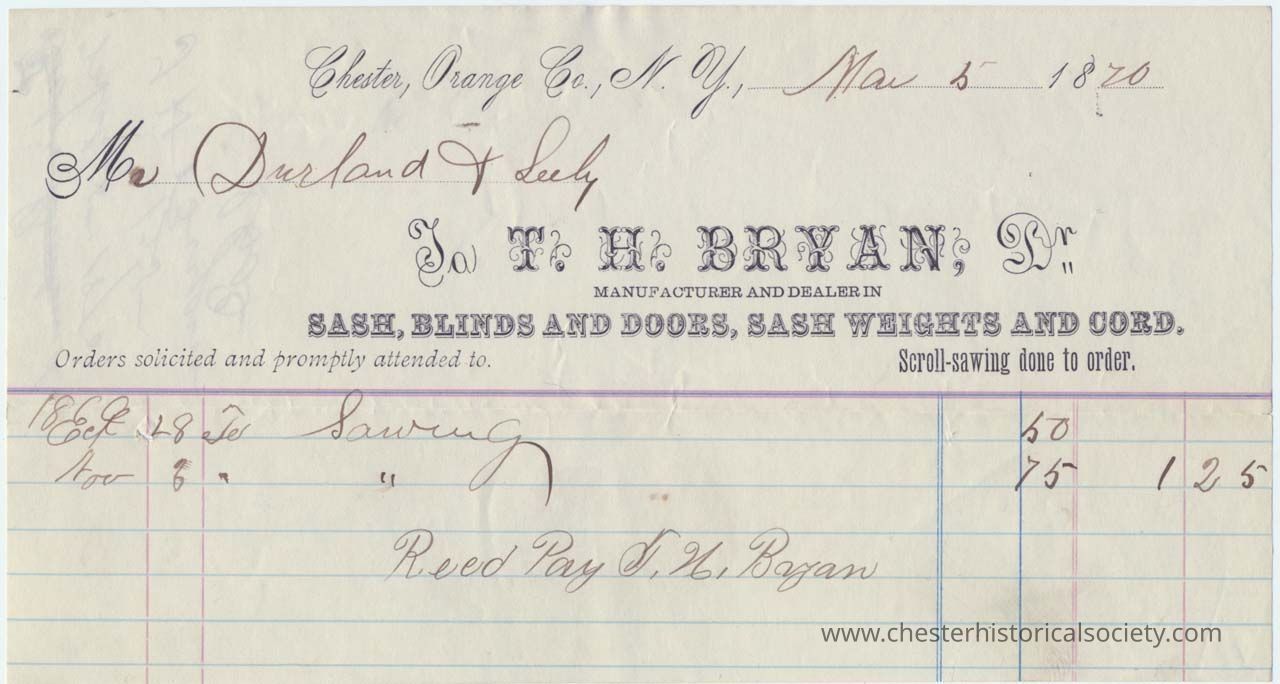 Chester, Orange Co., N. Y., Mar 5 1870
Mr Durland & Seely
To T. H. BRYAN, Dr
MANUFACTURER AND DEALER IN
SASH, BLINDS AND DOORS, SASH WEIGHTS AND CORD.
Orders solicited and promptly attended to. Scroll-sawing done to order.
28 To Sawing 50
Nov 8 " " 75 1 25
Recd Pay T. H. Bryan
www.chesterhistoricalsociety.com